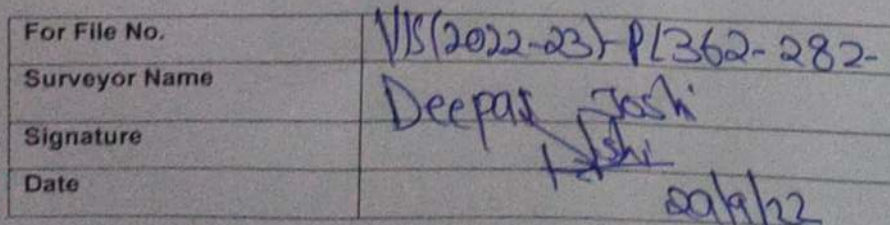 For File No. VIS(2022-23)-PL362-282-
Surveyor Name Deepak Joshi
Signature Joshi
Date 20/9/22